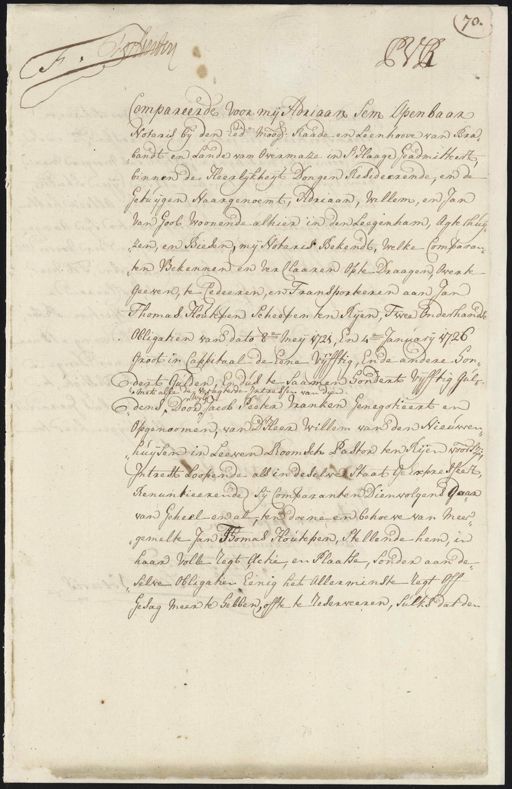 70.
PVR
Compareerde voor mij Adriaan Sem Openbaar
Notaris by den Ed: Moog: Raade en Leenhoove van Bra-
bandt en Lande van Overmaze in S'Hage Geadmitteert,
binnen de Heerlijkheyt Dongen Resideerende, en de
Getuijgen Naargenoemt, Adriaan, Willem, en Jan
Van Gool Woonende alhier in den Leegenham, Agtethuy
zen, en Bieden, mij Notaris Bekendt, Welke Comparan-
ten Bekennen en Verclaaren Opte Draagen, Overte
Geeven, te Cedeeren, en Transporteeren aan Jan
Thomas Houtepen Scheepen tot Rijen, Twee Onderhands
Obligatien van dato 8en Meij 1721, En 4en January 1726
Groot in Capptaal de Eene Vijfftig, En de andere Hon-
dert Gulden, En dus te Saamen Hondert Vijfftig Gul-
met alle de verloopene Intressen van dijen
dens, Door Jacob Peeter Vranken Genegotieert en
Opgenoomen, van D'Heer Willem van den Nieuwen-
huijsen in Leeven Roomsch Pastor ten Rijen voors:
Intrest Loopende als in deselve Staat Geexpresseert,
Renuntieerende Sij Comparanten Dienvolgens Daar
van Geheel en al, ten doene en behoeve van Meer-
gemelte Jan Thomas Houtepen, Stellende hem, in
haar Volle Regt, Actie, en Plaatse, Sonder aan de-
selve Obligatien Eenig het Allerminste Regt Off
Gesag Meer te Hebben, offte te Reserveeren, Sulks dat de